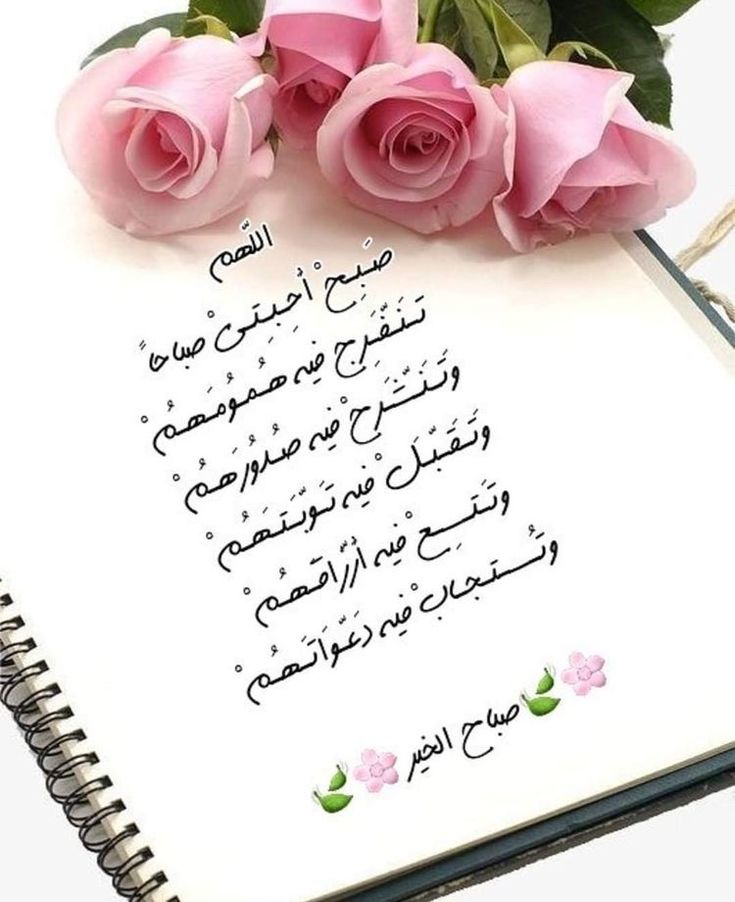 اللّهم
صَبِحْ أحِبَتِىْ صباحاً
تَنَفَّرِج فيه هُمُومَهُمْ
وَتَنَّشَرِحْ فيه صُدُورَهُمْ
وَتَقَبّلْ فيه تَوّبَتَهُمْ
وتَتَسِعْ فيه أرّزَاقَهُمْ
وتُستجابْ فيه دَعّوَاتَهُمْ
صباح الخير